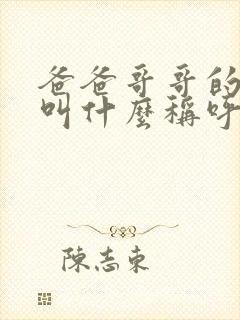 爸爸哥哥的
叫什麼稱呼
陳志東